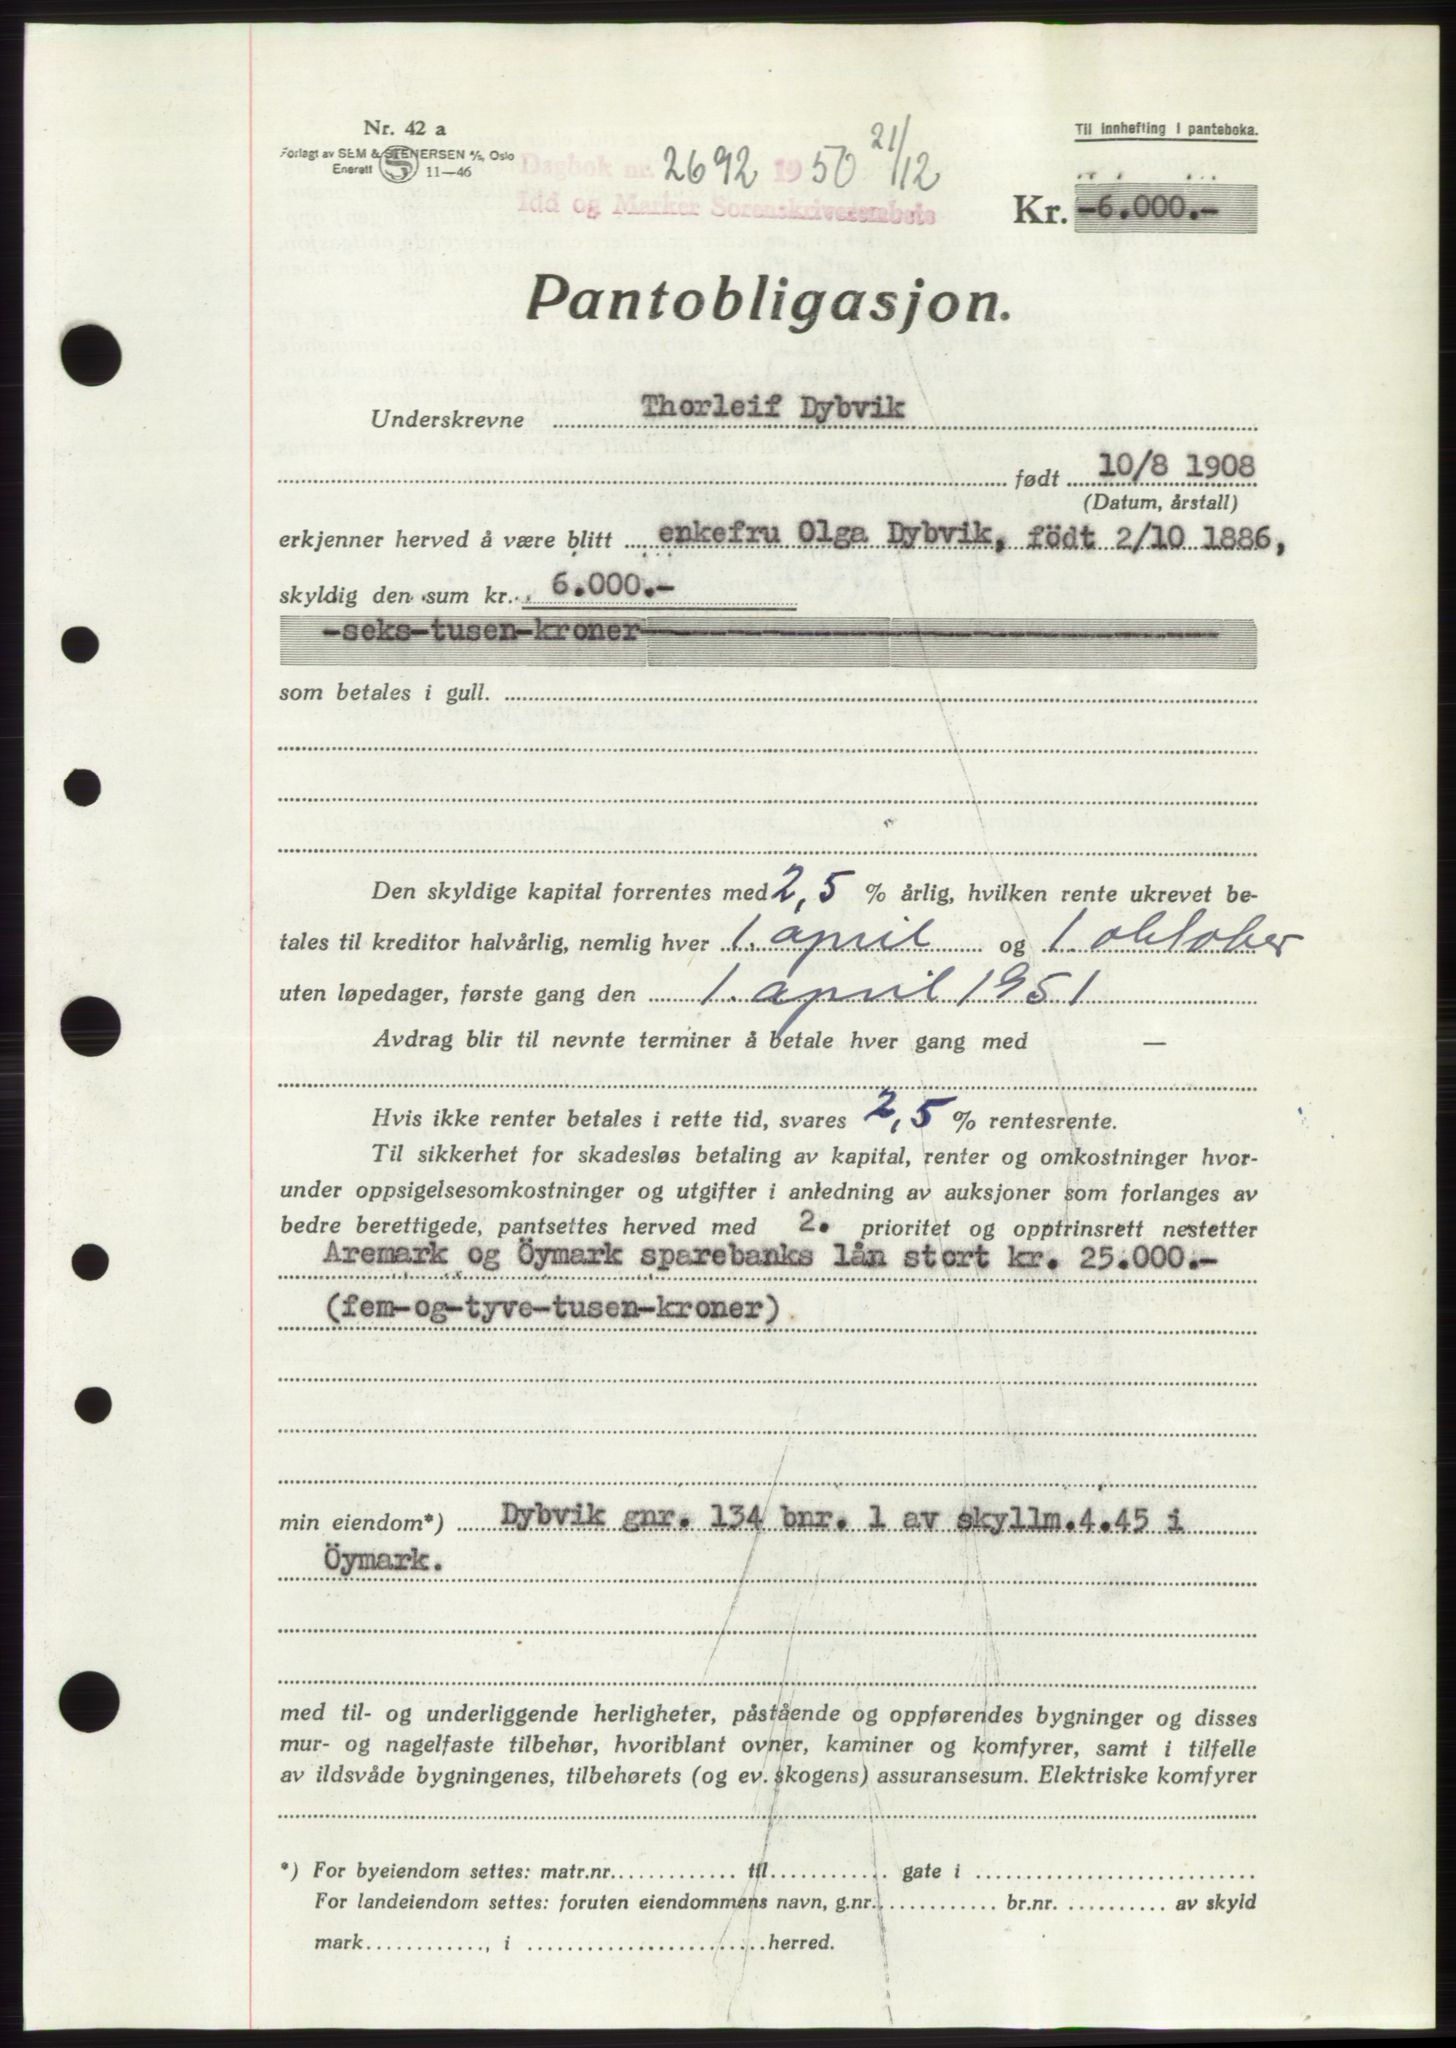 Nr. 42 a
Forlagt av SEM & STENERSEN A/S, Oslo
Enerett S 11—46
Til innhefting i panteboka.
Dagbok nr. 2692 1950 21/12
Idd og Marker Sorenskriverembete
Kr. -6.000.-
Pantobligasjon.
Underskrevne Thorleif Dybvik
født 10/8 1908
(Datum, årstall)
erkjenner herved å være blitt enkefru Olga Dybvik, födt 2/10 1886,
skyldig den sum kr. 6.000.-
-seks-tusen-kroner-
som betales i gull.
Den skyldige kapital forrentes med 2,5 % årlig, hvilken rente ukrevet be-
tales til kreditor halvårlig, nemlig hver 1. april og 1. oktober
uten løpedager, første gang den 1. april 1951
Avdrag blir til nevnte terminer å betale hver gang med —
Hvis ikke renter betales i rette tid, svares 2,5 % rentesrente.
Til sikkerhet for skadesløs betaling av kapital, renter og omkostninger hvor-
under oppsigelsesomkostninger og utgifter i anledning av auksjoner som forlanges av
bedre berettigede, pantsettes herved med 2. prioritet og opptrinsrett nestetter
Aremark og Öymark sparebanks lån stort kr. 25.000.-
(fem-og-tyve-tusen-kroner)
min eiendom*) Dybvik gnr. 134 bnr. 1 av skyllm.4.45 i
Öymark.
med til- og underliggende herligheter, påstående og oppførendes bygninger og disses
mur- og nagelfaste tilbehør, hvoriblant ovner, kaminer og komfyrer, samt i tilfelle
av ildsvåde bygningenes, tilbehørets (og ev. skogens) assuransesum. Elektriske komfyrer
*) For byeiendom settes: matr.nr. til gate i
For landeiendom settes: foruten eiendommens navn, g.nr. br.nr. av skyld
mark, i herred.